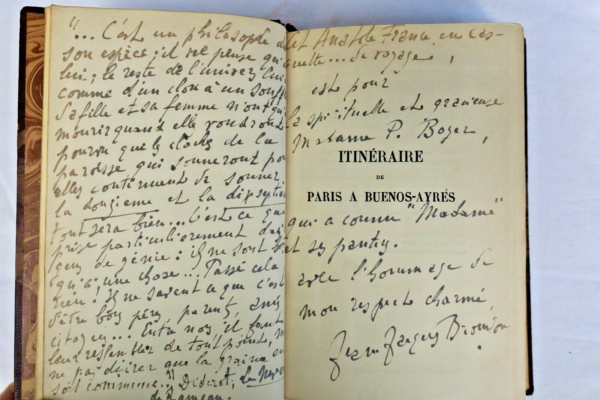 "... C'est un philosophe de
son espèce; il ne pense qu'à
lui; le reste de l'univers lui est
comme d'un clou à un soufflet
Sa fille et sa femme n'ont qu'à
mourir quand elles voudront
pourvu que les cloches de la
paroisse qui sonneront pour
elles continuent de sonner
la douzième et la dix septième
tout sera bien... C'est ce que
prise particulièrement dans
gens de génie: ils ne sont bons
qu'à une chose... Passé cela
rien! Ils ne savent ce que c'est
d'être bons pères, parents, amis
citoyens... Entre nous, il faut
leur ressembler de tout point, mais
ne pas désirer que la graine en
soit commune.." Diderot, Le Neveu
de Rameau.
Cet Anatole France en cas-
quette... de voyage,
est pour
la spirituelle et gracieuse
Madame P. Boyer,
ITINÉRAIRE
DE
PARIS A BUENOS-AYRES
qui a connu "Madame"
et ses pantins.
avec l'hommage de
mon respect charmé,
Jean Jacques Brousson